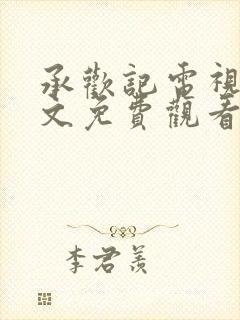 承歡記電視
文免費觀看
李君羨